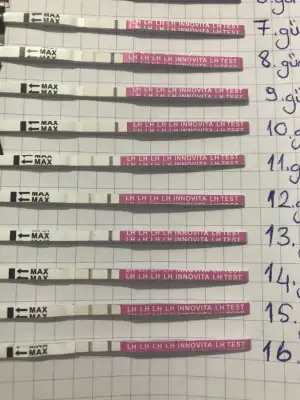 MAX LH LH LH LH INNOVITA LH TEST 7.gü
MAX LH LH LH LH INNOVITA LH TEST 8.gü
MAX LH LH LH LH INNOVITA LH TEST 9.gü
MAX LH LH LH LH INNOVITA LH TEST 10.
MAX LH LH LH LH INNOVITA LH TEST 11.g
MAX LH LH LH LH INNOVITA LH TEST 12.
MAX LH LH LH LH INNOVITA LH TEST 13.
MAX LH LH LH LH INNOVITA LH TEST 14.
MAX LH LH LH LH INNOVITA LH TEST 15.
MAX LH LH LH LH INNOVITA LH TEST 16.